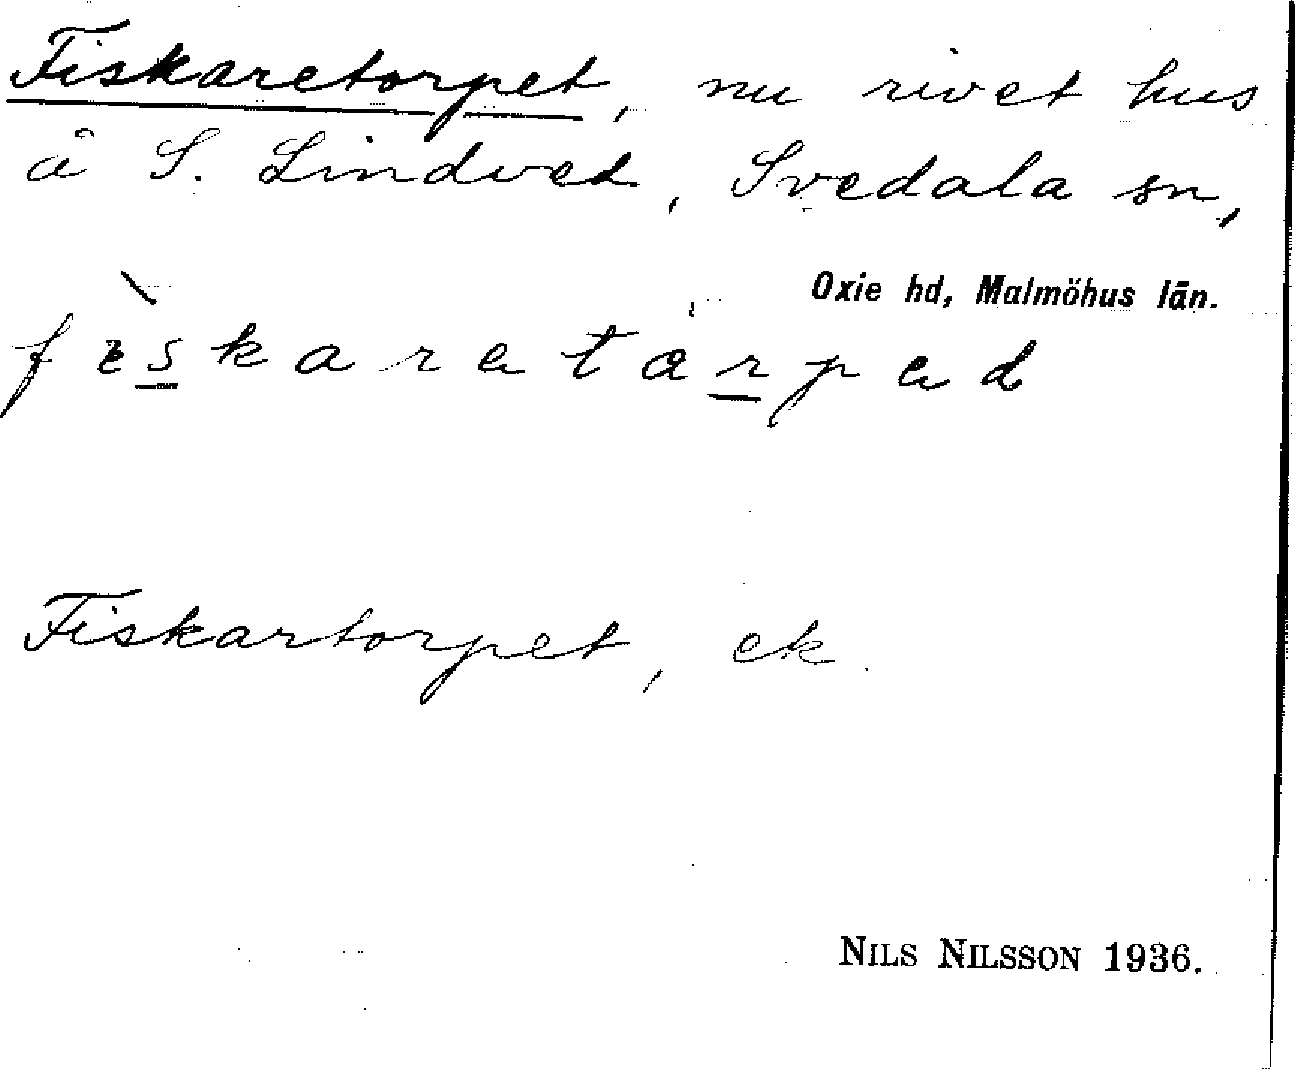 Fiskaretorpet, nu rivet hus
å S. Lindved, Svedala sn,
Oxie hd, Malmöhus län.
fìskaretarped
Fiskartorpet, ek.
NILS NILSSON 1936.